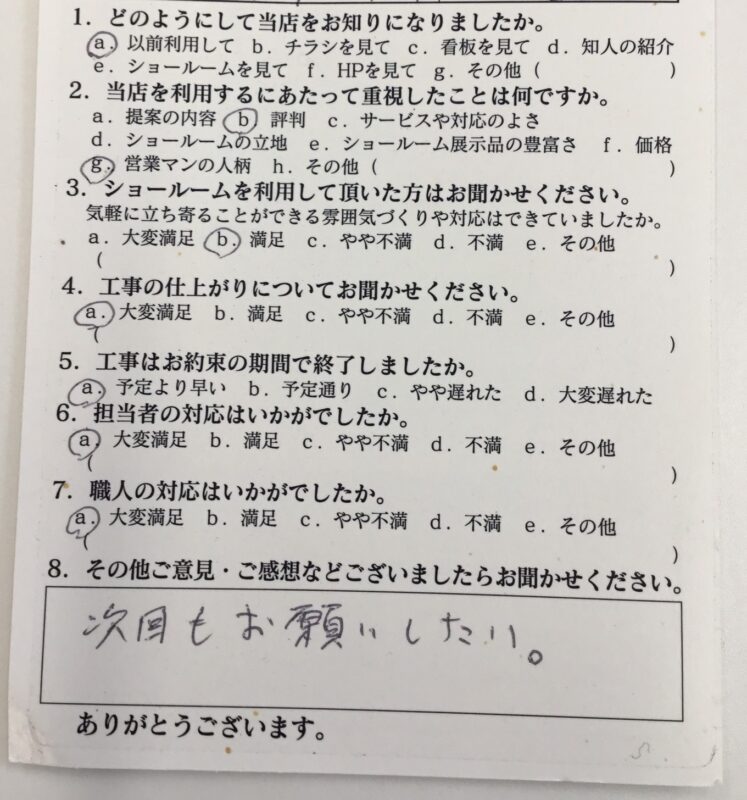 1．どのようにして当店をお知りになりましたか。
a．以前利用して b．チラシを見て c．看板を見て d．知人の紹介
e．ショールームを見て f．HPを見て g．その他（ ）
2．当店を利用するにあたって重視したことは何ですか。
a．提案の内容 b 評判 c．サービスや対応のよさ
d．ショールームの立地 e．ショールーム展示品の豊富さ f．価格
g．営業マンの人柄 h．その他（ ）
3．ショールームを利用して頂いた方はお聞かせください。
気軽に立ち寄ることができる雰囲気づくりや対応はできていましたか。
a．大変満足 b．満足 c．やや不満 d．不満 e．その他
（ ）
4．工事の仕上がりについてお聞かせください。
a．大変満足 b．満足 c．やや不満 d．不満 e．その他
（ ）
5．工事はお約束の期間で終了しましたか。
a．予定より早い b．予定通り c．やや遅れた d．大変遅れた
6．担当者の対応はいかがでしたか。
a 大変満足 b．満足 c．やや不満 d．不満 e．その他
（ ）
7．職人の対応はいかがでしたか。
a．大変満足 b．満足 c．やや不満 d．不満 e．その他
（ ）
8．その他ご意見・ご感想などございましたらお聞かせください。
次回もお願いしたい。
ありがとうございます。